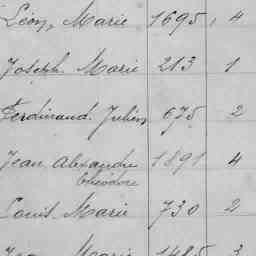 Léon, Marie 1695, 4
Joseph Marie 213 1
Ferdinand Julien 675 2
Jean Alexandre 1891 4
Théodore
Louis Marie 730 2
Marie 1485 3